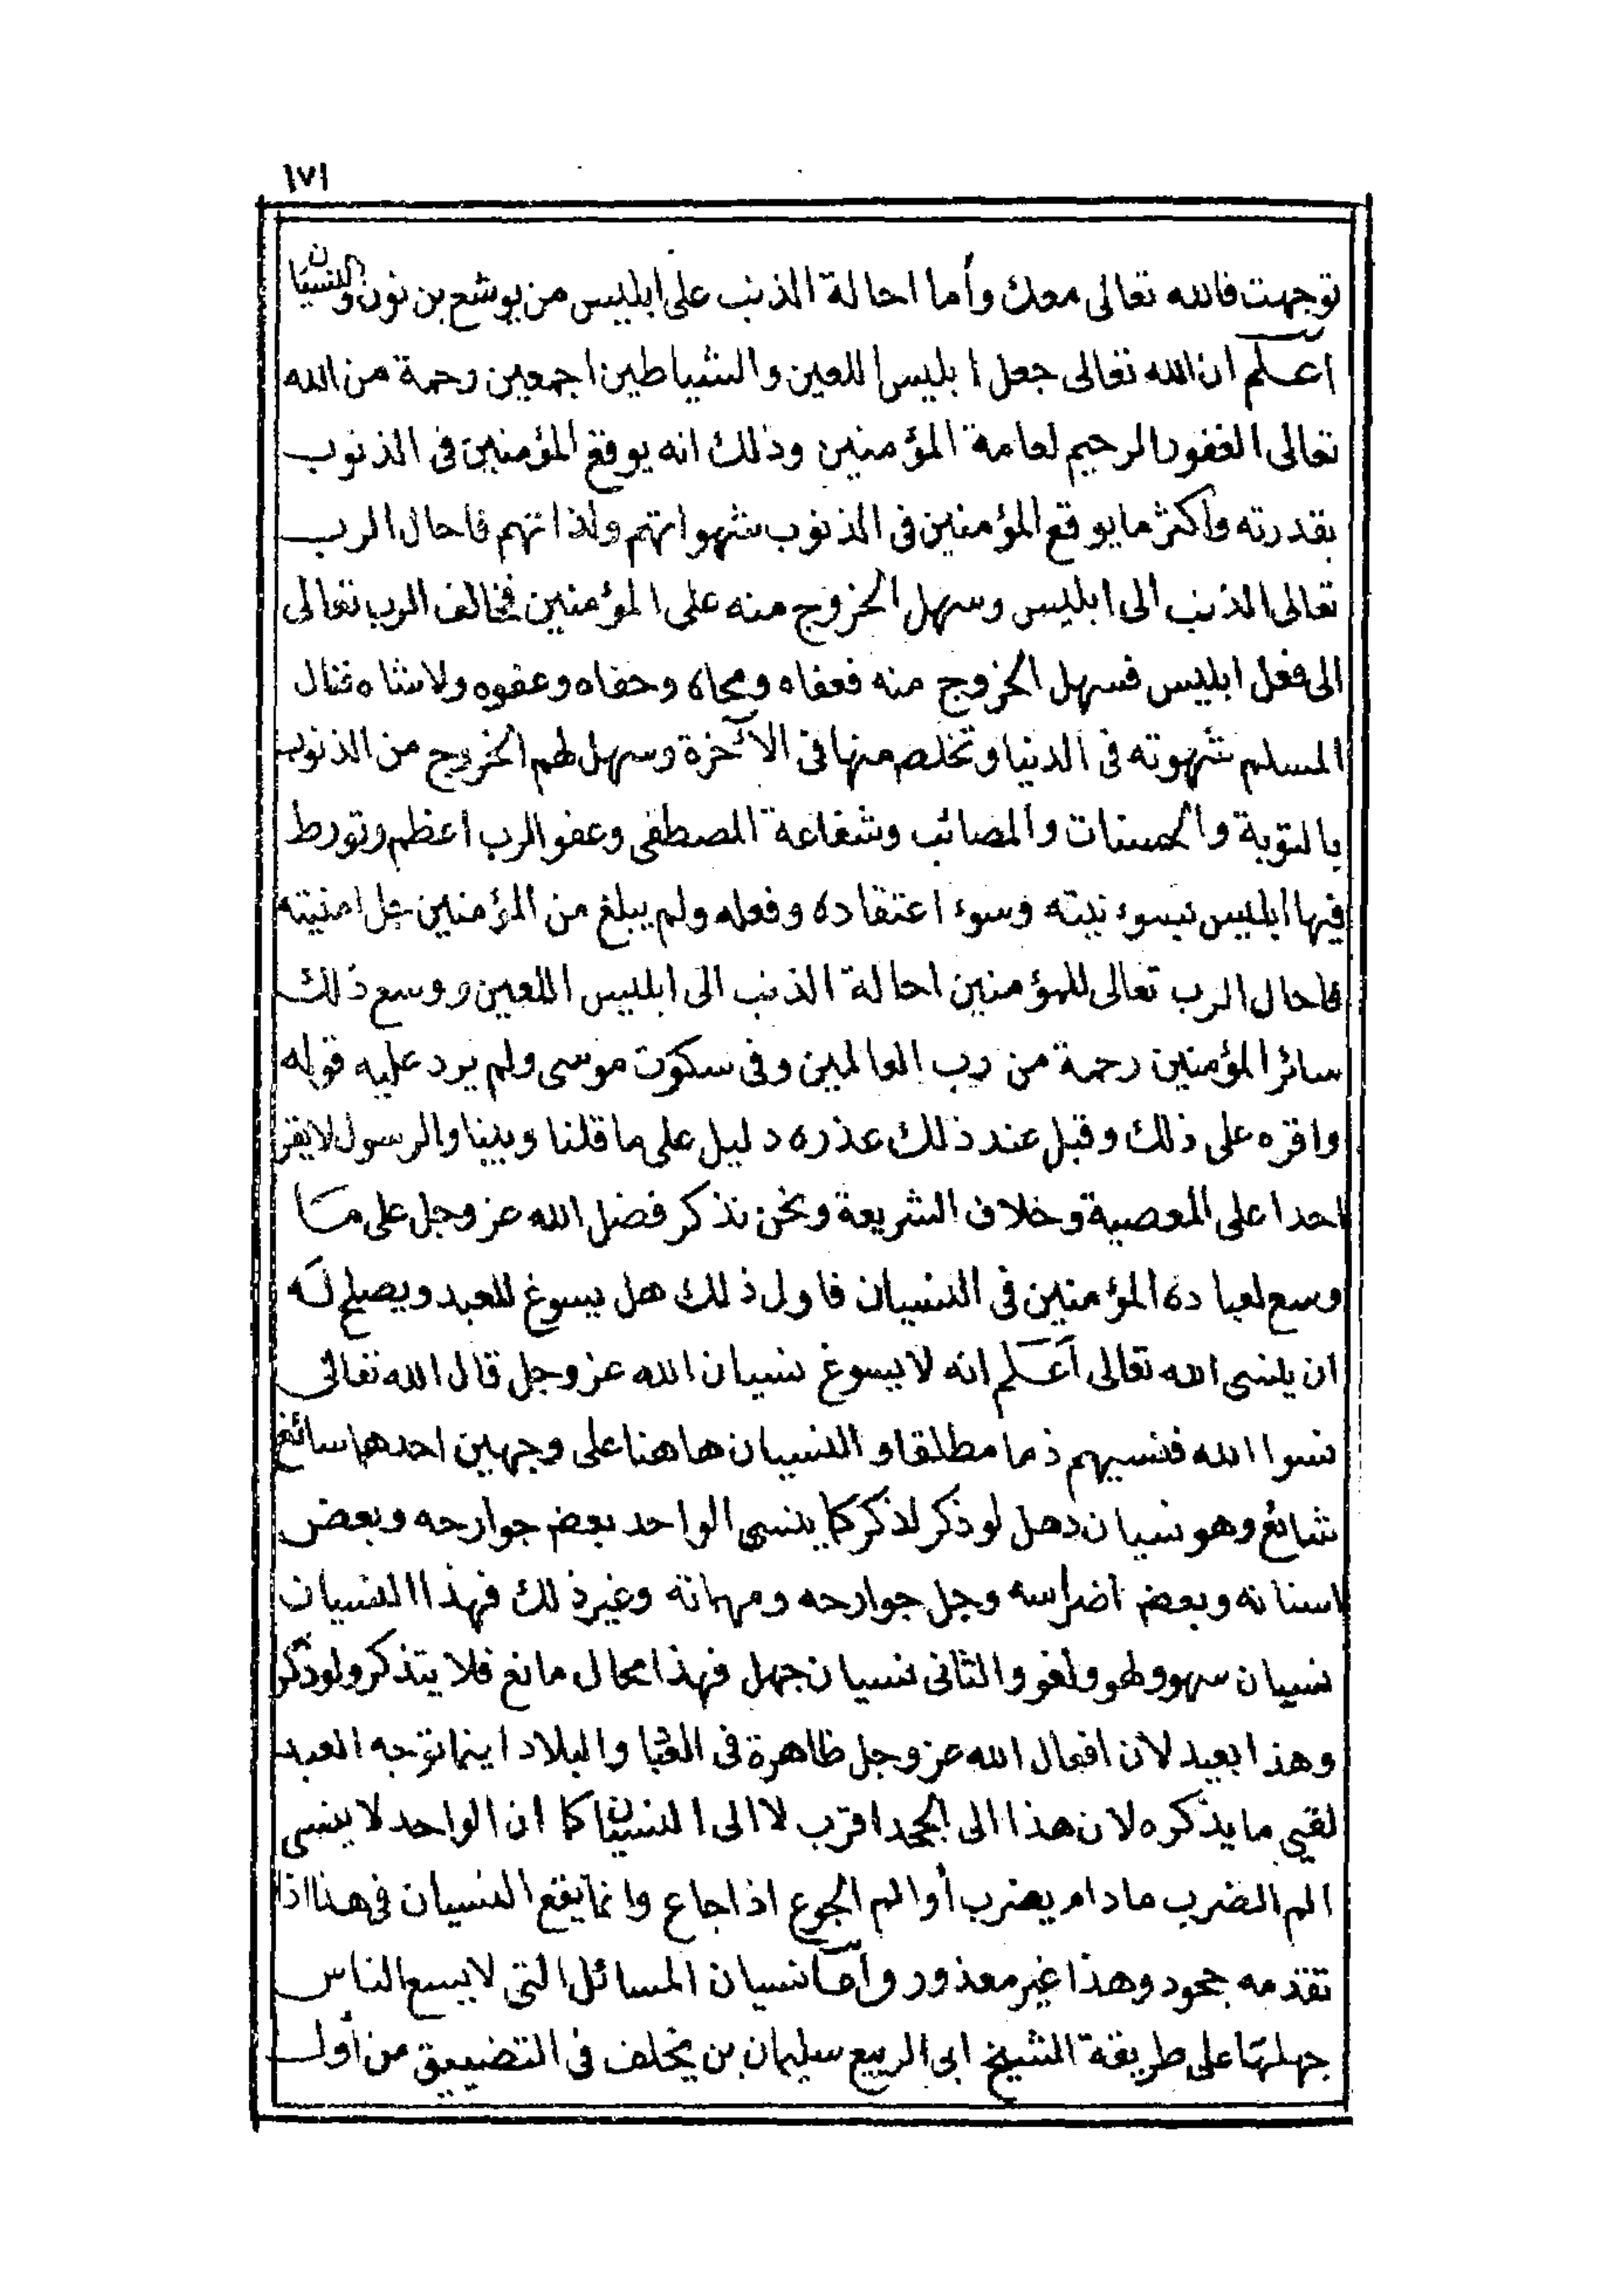 ١٧١
توجهت فالله تعالى معك وأما احالة الذنب على ابليس من يوشع بن نون والنسيان
اعلم ان الله تعالى جعل ابليس اللعين والشياطين اجمعين رحمة من الله
تعالى الغفور الرحيم لعامة المؤمنين وذلك انه يوقع المؤمنين فى الذنوب
بقدرته وأكثر ما يوقع المؤمنين فى الذنوب شهواتهم ولذاتهم فاحال الرب
تعالى الذنب الى ابليس وسهل الخروج منه على المؤمنين فخالف الرب تعالى
الى فعل ابليس فسهل الخروج منه فعفاه ومحاه وحفاه وعفوه ولاشاه فنال
المسلم شهوته فى الدنيا وتخلص منها فى الآخرة وسهل لهم الخروج من الذنوب
بالتوبة والحسنات والمصائب وشفاعة المصطفى وعفو الرب اعظم وتورط
فيها ابليس بسوء نيته وسوء اعتقاده وفعله ولم يبلغ من المؤمنين جل امنيته
فاحال الرب تعالى للمؤمنين احالة الذنب الى ابليس اللعين ووسع ذلك
سائر المؤمنين رحمة من رب العالمين وفى سكوت موسى ولم يرد عليه قوله
واقره على ذلك وقبل عند ذلك عذره دليل على ما قلنا وبينا والرسول لا يقر
احدا على المعصية وخلاف الشريعة ونحن نذكر فضل الله عز وجل على ما
وسع لعباده المؤمنين فى النسيان فاول ذلك هل يسوغ للعبد ويصلح له
ان ينسى الله تعالى اعلم انه لا يسوغ نسيان الله عز وجل قال الله تعالى
نسوا الله فنسيهم ذما مطلقا والنسيان هاهنا على وجهين احدهما سائغ
شائع وهو نسيان ذهل لو ذكر لذكر كما ينسى الواحد بعض جوارحه وبعض
اسنانه وبعض اضراسه وجل جوارحه ومهماته وغير ذلك فهذا النسيان
نسيان سهو ولهو ولغو والثانى نسيان جهل فهذا محال مانع فلا يتذكر ولو ذكر
وهذا بعيد لان افعال الله عز وجل ظاهرة فى والبلاد اينما توجه العبد
لقي ما يذكره لان هذا الى الجحد اقرب لا الى النسيان كما ان الواحد لا ينسى
الم الضرب مادام يضرب أوالم الجوع اذا جاع وانما يقع النسيان فى هذا اذا
تقدمه جحود وهذا غير معذور وأما نسيان المسائل التى لا يسع الناس
جهلها على طريقة الشيخ ابى الربيع سليمان بن يخلف فى التضييق من أول